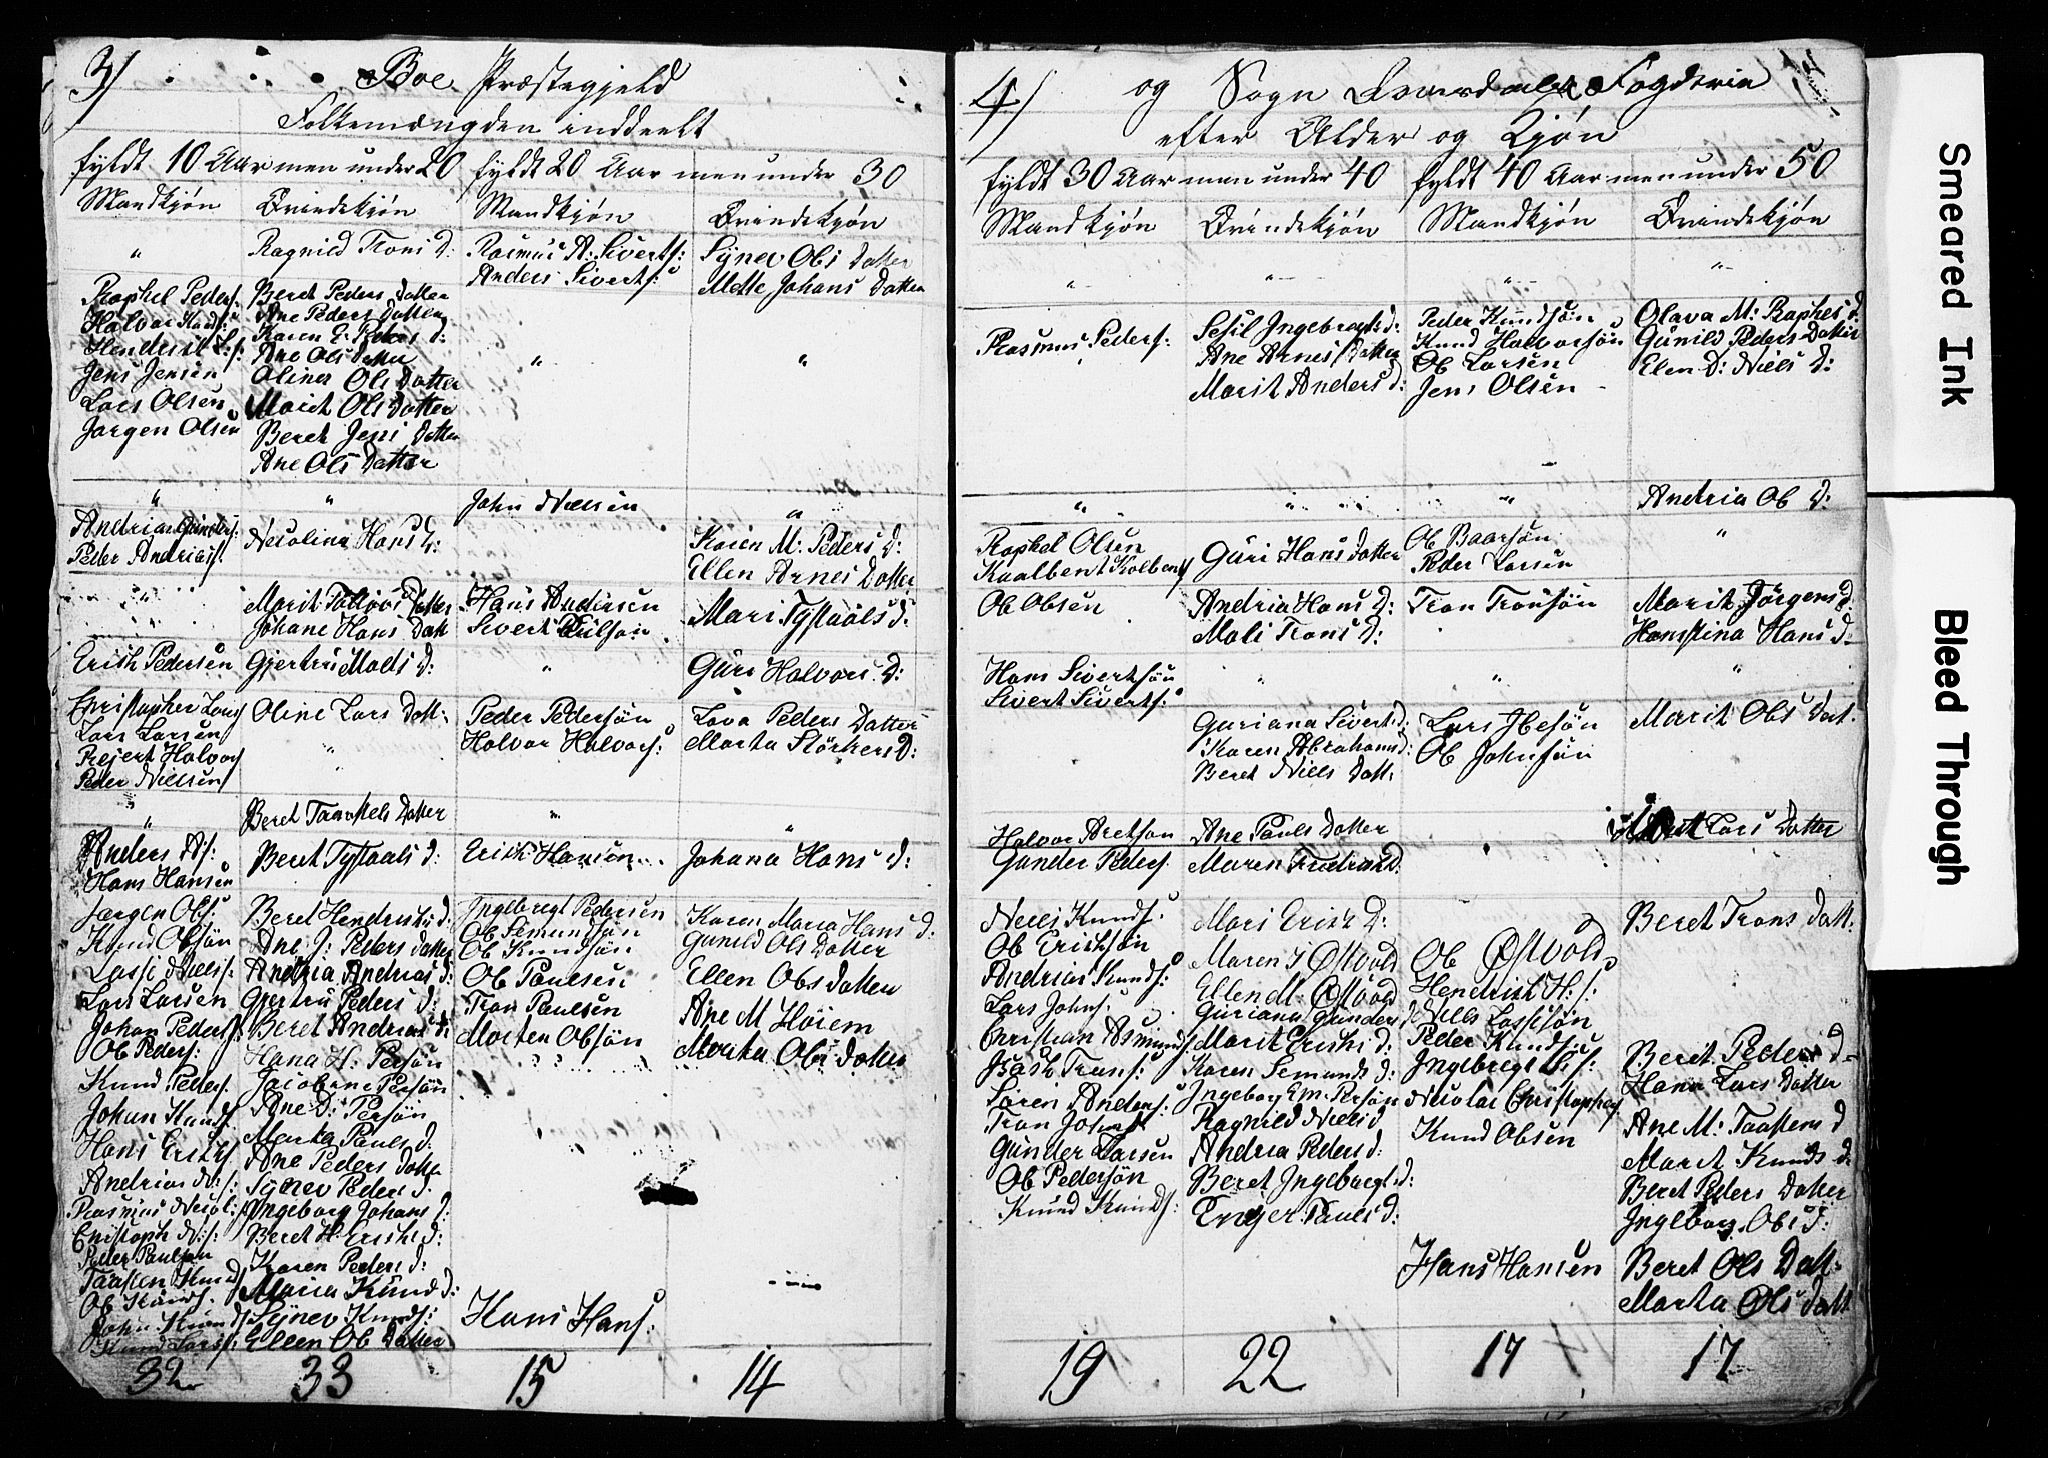 3/
Boe Præstegjeld
Folkemængden inddeelt
fyldt 10 Aar men under 20 fyldt 20 Aar men under 30
Mandkjøn Qvindekjøn Mandkjøn Qvindekjøn
" Ragnild Trons D: Rasmus A: Siverts: Synev Ols Datter
Anders Siverts: Mette Johans Datter
Raphel Peders: Beret Peders Datter
Halvor Knuds: Ane Peders Datter
Karen E. Peders d:
Ane Ols Datter
Jens Jensen Olines Ols Datter " "
Lars Olsen Marit Ols Datter
Jørgen Olsen Beret Jens Datter
Ane Ols Datter
" " John Nielsen "
Andrias Gunders: Nicolina Hans D: Karen M: Peders D:
Peder Andrias: Ellen Arnes Datter
" Marit Datter Hans Andersen Mari Tystaals d:
Johane Hans Datt Sivert
Erich Pedersen Gjertru Mads D: " Guri Halvors D:
Christopher Lars Oline Lars Datt: Peder Pedersøn Lova Peders Datter
Lars Larsen " Halvor Halvors: Marta Størkers D:
Rejert Halvors
Peder Nielsen
" Beret Taraldsels Datter " "
Anders A: Beret Tystaals d: Erich Hansen Johana Hans d:
Hans Hansen
Jørgen Ols: Beret Hendrichs d: Ingebregt Pedersen Karen Maria Hans d:
Knud Olsøn Ane J: Peders datter Ol Semundsøn Gunild Ols Datter
Lasse Niels: Andria Andrias d: Ol Knudsøn
Lars Larsen Gjertru Peders d: Ol Paulsen Ellen Ols datter
Johan Peders: Beret Andrias d: Tron Paulsen Ane M Høiem
Ol Peders: Hana H: Persøn Morten Olsøn Marta Ols datter
Knud Peders: Jacobane Persøn
Johan Knuds Ane D: Persøn
Hans Erichs Marta Pauls d:
Ane Peders Datter
Andrias N: Synev Peders d.
Rasmus Nicol: Ingeborg Johans d:
Christoph N: Beret H: Erichs d:
Peder Paulsen Karen Peders d:
Taasten Knuds Maria Knuds D:
Ol Knuds. Synev Knuds:
John Knuds Ellen Ol Datter
Knud Lars: Hans Hans:
32 33 15 14
4/
og Sogn Fogderie
efter Alder og Kjøn
fyldt 30 Aar men under 40 fyldt 40 Aar men under 50
Mandkjøn Qvindekjøn Mandkjøn Qvindekjøn
" " " "
Rasmus Peders: Sesil Ingebregts d: Peder Knudsøn Olava M: Raphels d:
Ane Arnes Datter Knud Halvorsøn Gunild Peders Datter
Marit Anders d: Ol Larsen Elen D: Niels D:
Jens Olsen
" " " Andria Ol D:
Raphel Olsen Guri Hans datter Ol Baarsøn "
Kaalbent Kolbents Peder Larsen
Ol Olsen Andria Hans D: Tron Tronsøn Marit Jørgens d:
Mali Trons D: Hanstina Hans d:
Hans Sivertsøn " " "
Sivert Siverts:
Guriana Siverts d: Lars Ibesøn Marit Ols Dat.
Karen Abrahams d: Ol Johnsøn
Beret Niels Datt:
Halvor Aretsøn Ane Pauls Datter Marit Lars Datter
Gunder Peders Maren Fredrichs D:
Niels Knuds: Mari Erich D: Beret Trons Datt:
Ol Erichsøn Maren J Østvold Ol Østvold
Andrias Knuds: Ellen M: Østvold Hendrich H:
Lars Johns: Guriana Gunders d Niels Lassesøn
Christian Asmunds: Marit Erichs d: Peder Knudsøn Berit Peders D-
Bach Trons: Karen Semunds d: Ingebregt Hana Lars Datter
Søren Anders: Ingeborg E M: Persøn Nicolai Christophers
Tron Ragnild Niels d Knud Olsen Ane M: Taastens d
Gunder Larsen Andria Peders d: Marit Knuds d:
Ol Pedersøn Beret Ingebregts d: Beret Peders Datter
Knud Knuds: Enger Pauls d: Ingeborg Ols d:
Hans Hansen Beret Ols Datt:
Marta Ols datt
19 22 17 17
Smeared Ink
Bleed Through